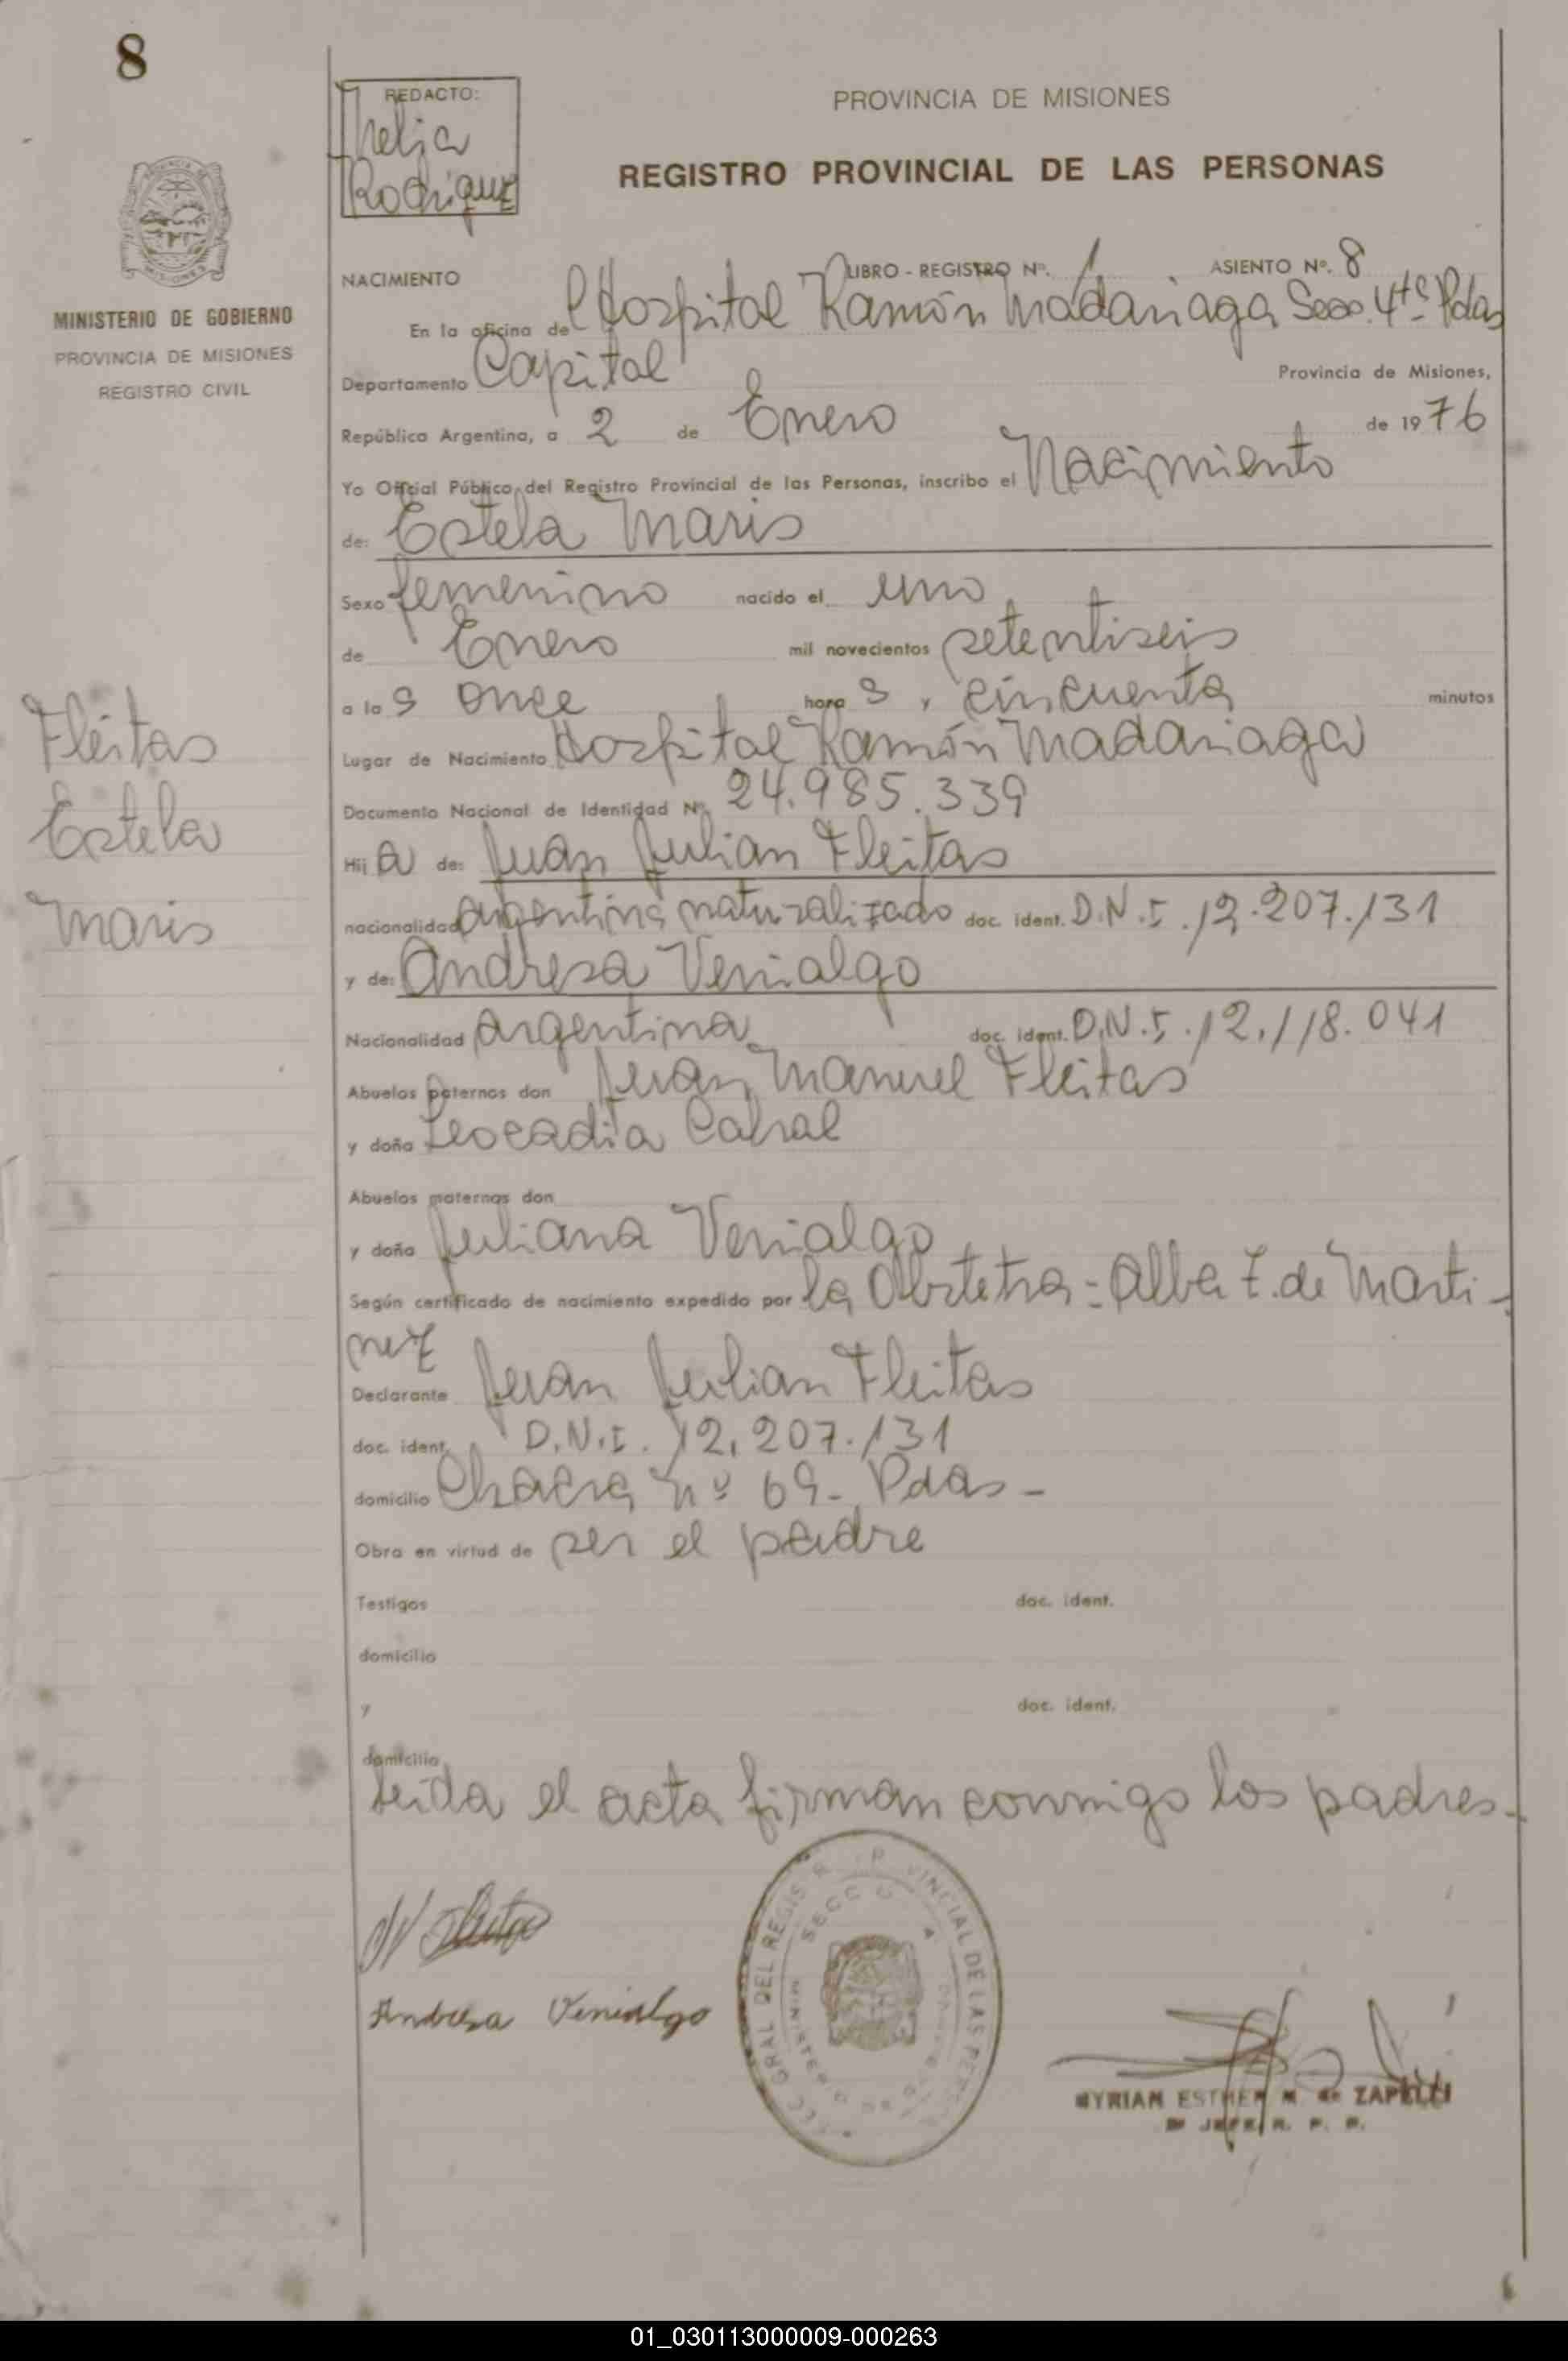 8
REDACTO:
Nelia
Rodriguez
PROVINCIA DE MISIONES
REGISTRO PROVINCIAL DE LAS PERSONAS
MINISTERIO DE GOBIERNO
PROVINCIA DE MISIONES
REGISTRO CIVIL
NACIMIENTO LIBRO - REGISTRO Nº. 1 ASIENTO Nº. 8
En la oficina del Hospital Ramón Madariaga Secc. 4ta Pdas
Departamento Capital Provincia de Misiones,
República Argentina, a 2 de Enero de 1976
Yo Oficial Público del Registro Provincial de las Personas, inscribo el Nacimiento
de: Estela Maris
Sexo femenino nacido el uno
de Enero mil novecientos setentiseis
a las once horas y cincuenta minutos
Fleitas
Estela
Maris
Lugar de Nacimiento Hospital Ramón Madariaga
Documento Nacional de Identidad Nº 24.985.339
Hija de: Juan Julian Fleitas
nacionalidad argentino naturalizado doc. ident. D.N.I. 12.207.131
y de: Andresa Venialgo
Nacionalidad argentina doc. ident. D.N.I. 12.118.041
Abuelos paternos don Juan Manuel Fleitas
y doña Leocadia Cabral
Abuelos maternos don
y doña Juliana Venialgo
Según certificado de nacimiento expedido por la Obstetra - Alba Z. de Marti-
nez
Declarante Juan Julian Fleitas
doc. ident. D.N.I. 12.207.131
domicilio Chacra nº 69- Pdas-
Obra en virtud de ser el padre
Testigos doc. ident.
domicilio
y doc. ident.
domicilio
Leida el acta firman conmigo los padres.-
Andresa Venialgo
MYRIAN ESTHER M. de ZAPELLI
JEFE R. P. P.
01_030113000009-000263